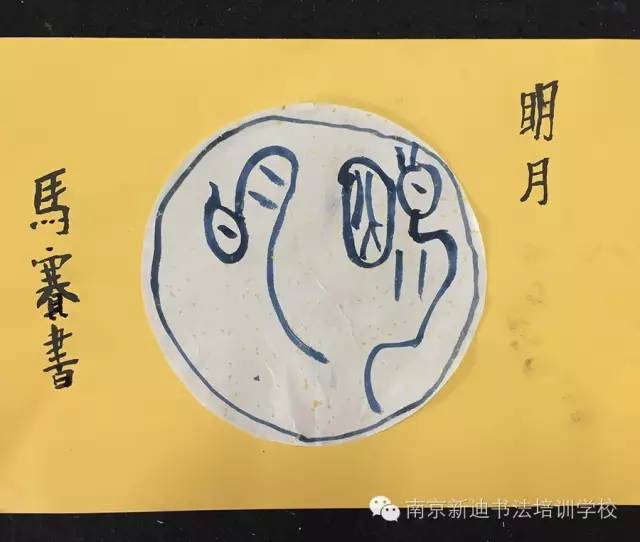 明月
馬賽書
南京新迪书法培训学校